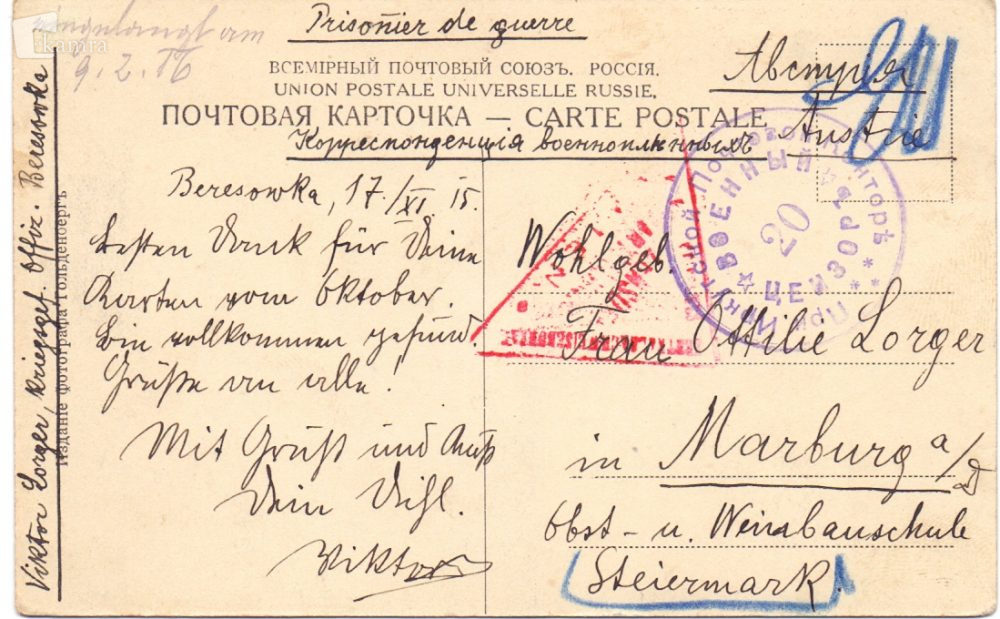 Prisonier de guerre
angelangt am
9. 2. 16
kamra
ВСЕМІРНЫЙ ПОЧТОВЫЙ СОЮЗЪ. РОССІЯ.
UNION POSTALE UNIVERSELLE RUSSIE.
ПОЧТОВАЯ КАРТОЧКА — CARTE POSTALE
Корреспонденція военноплѣнныхъ
Австрія
Austrie
Beresowka, 17./XI. 15.
Besten Dank für Deine
Karten vom Oktober.
Bin vollkommen gesund
Grüße an alle!
Mit Gruß und Kuß
Dein
Viktor
Wohlgeb.
Frau Ottilie Lorger
in Marburg a/D
Obst- u. Weinbauschule
Steiermark
ВОЕННЫЙ
20
ЦЕНЗОРЪ
При Иркутской Почтовой Конторѣ
Viktor Lorger, kriegsgef. Offiz. Beresowka
Изданіе фотографа Гольденбергъ